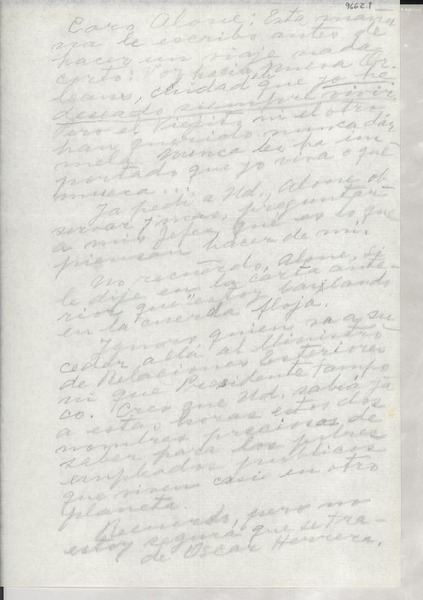 9662.1
Caro Alone: Esta maña-
na le escribo antes de
hacer un viaje nada
corto: Voy hacia Nueva Or-
leans, ciudad que yo he
deseado siempre vivir.
Pero el Viejito ni el otro
han querido nunca dár-
mela. Nunca les ha im-
portado que yo viva o que
muera...
Ya pedí a Ud., Alone ob-
servar y mas, preguntar
a mis Jefes qué es lo que
piensan hacer de mí.
No recuerdo, Alone, si
le dije en la carta ante-
rior que "estoy bailando
en la cuerda floja.
Ignoro quien va a su-
ceder allá al Ministro
de Relaciones Exteriores
ni que Presidente tampo
co. Creo que Ud. sabrá ya
a estas horas estos dos
nombres preciosos de
saber para los pobres
empleados públicos
que viven casi en otro
planeta.
Recuerdo, pero no
estoy segura que se tra-
de Oscar Herrera.